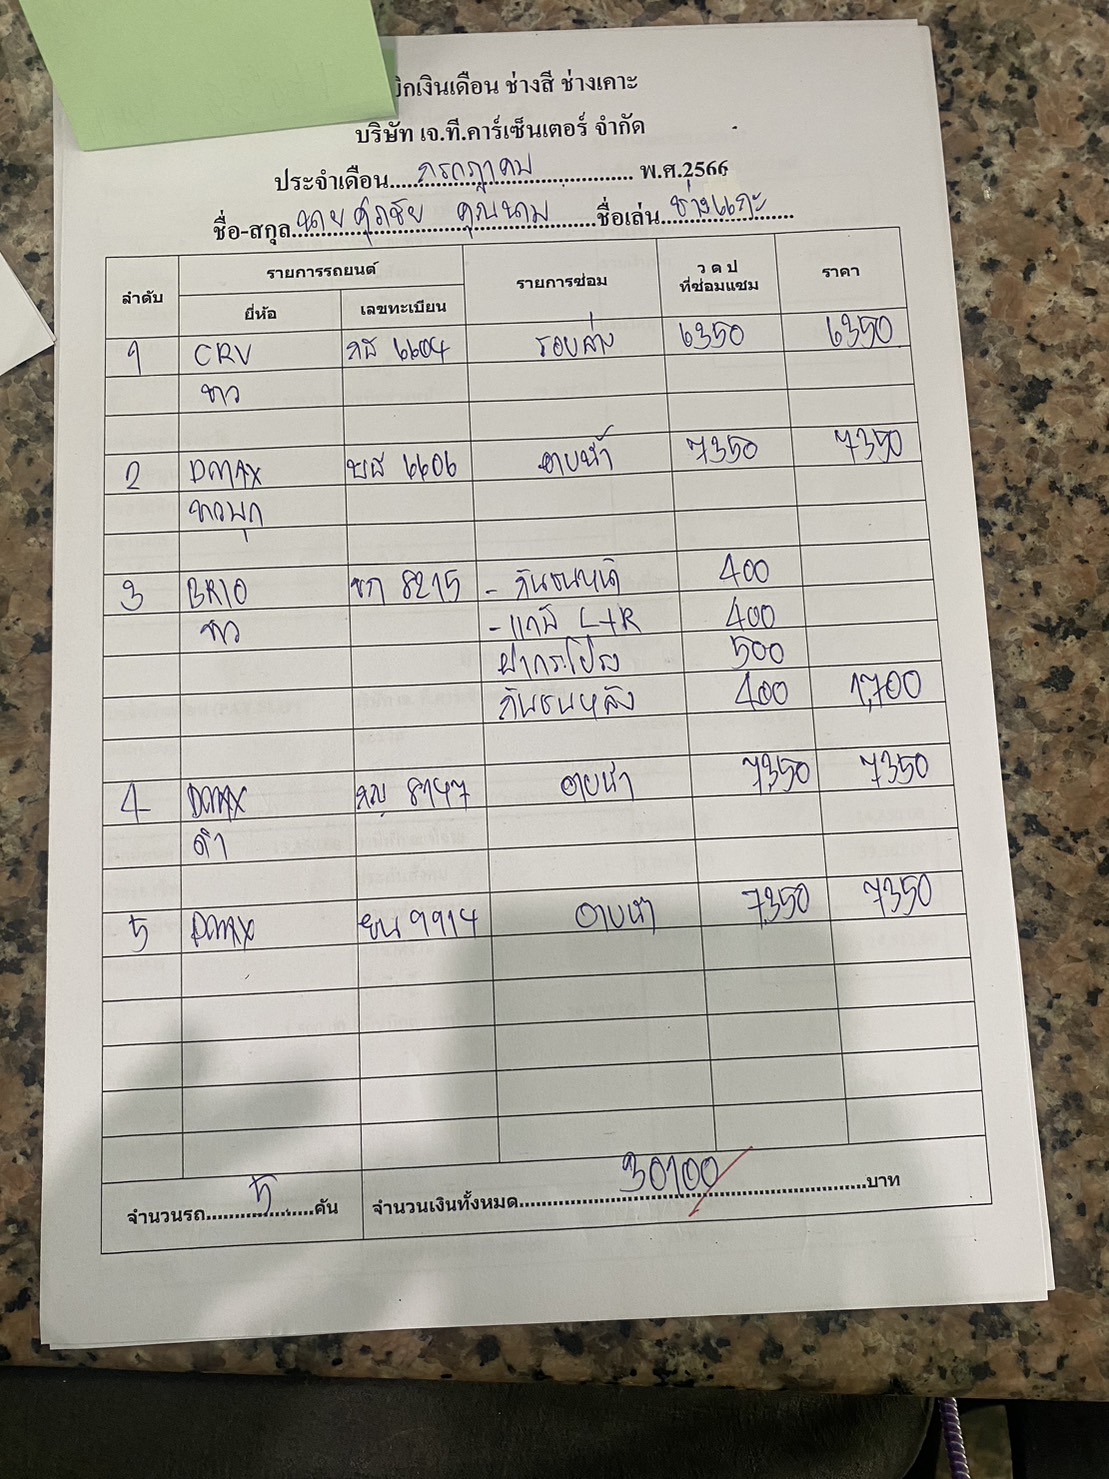 บิกเงินเดือน ช่างสี ช่างเคาะ
บริษัท เจ.ที.คาร์เซ็นเตอร์ จำกัด
ประจำเดือน กรกฎาคม พ.ศ.2566
ชื่อ-สกุล นาย ศุภชัย คุณนาม ชื่อเล่น ช่างแกะ
ลำดับ รายการรถยนต์ รายการซ่อม ว ด ป ที่ซ่อมแซม ราคา
ยี่ห้อ เลขทะเบียน
1 CRV 6604 รอบล่าง 6350 6350
ขาว
2 DMAX 6606 อาบน้ำ 7350 7350
ขาวมุก
3 BRIO ขก 8215 - กันชนหน้า 400
ขาว - แก้ม L+R 400
ฝากระโปรง 500
กันชนหลัง 400 1,700
4 DMAX 8147 อาบน้ำ 7,350 7350
ดำ
5 DMAX ยน 9914 อาบน้ำ 7,350 7350
จำนวนรถ 5 คัน จำนวนเงินทั้งหมด 30100 บาท